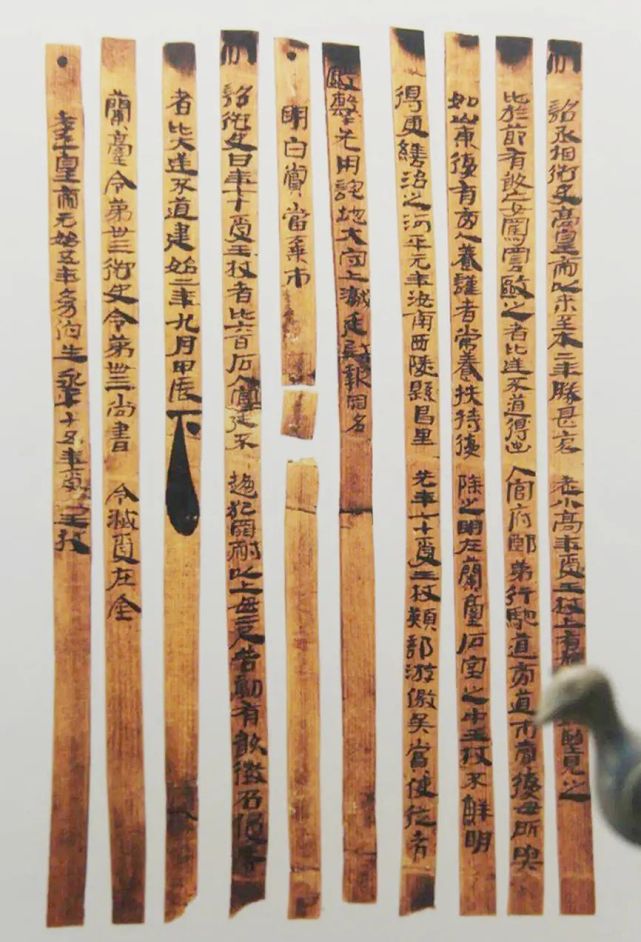 制詔丞相御史高皇帝以來至本二年勝甚哀老小高年受王杖上有望見之
比於節有敢妄罵詈毆之者比逆不道得出入官府郎第行馳道旁道市賣復毋所與
如山東復有旁人養謹者常養扶持復除之明在蘭臺石室之中王杖不鮮明
得更繕治之河平元年汝南西陵縣昌里先年七十受王杖類部游徼吳賞使從者
毆擊先用詫地大守上讞廷尉報罪名
明白賞當棄市
制詔御史曰年七十受王杖者比六百石入宮廷不趨犯罪耐以上毋二尺告劾有敢徵召侵辱
者比大逆不道建始二年九月甲辰下
蘭臺令第卅三御史令第卌三尚書令滅受在金
孝平皇帝元始五年幼伯生永平十五年受王杖